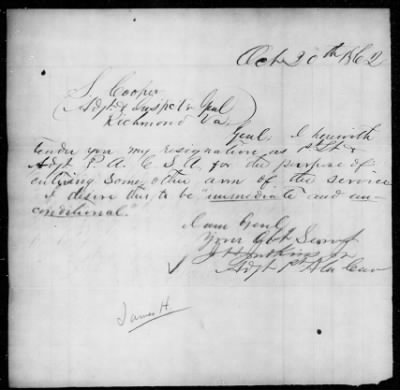 Oct 30th 1862
S. Cooper
Adjt & Inspet'r Genl
Richmond Va.
Genl. I herewith
tender you my resignation as 1st Lt &
Adjt P. A. C. S. A. for the purpose of
entering some other arm of the service
I desire this to be "immediate and un-
conditional."
I am Genl
Your Obt Servt
Jr
Adjt 1st Ala Cav
James H.